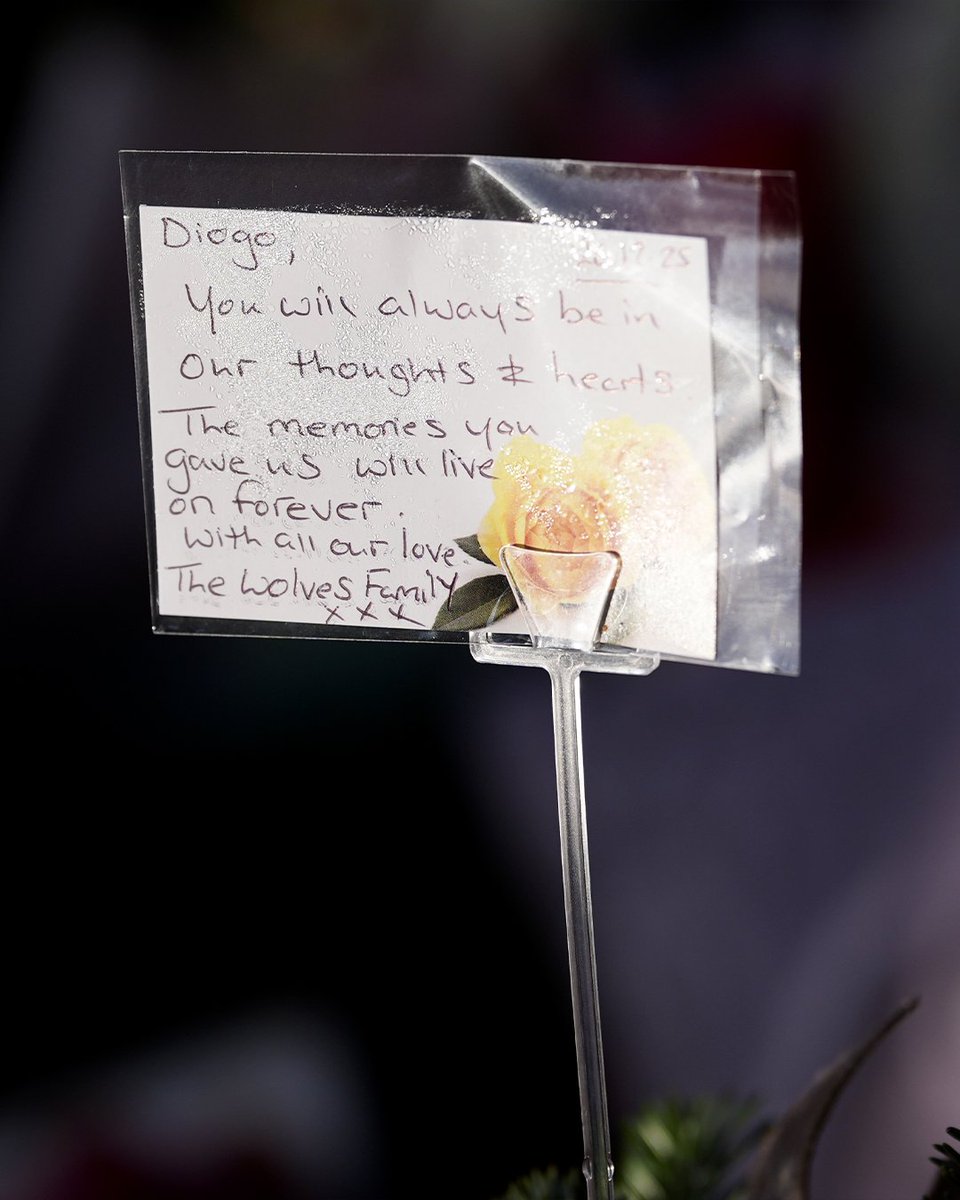 Diogo,
12 25
You will always be in
our thoughts & hearts.
The memories you
gave us will live
on forever.
With all our love.
The Wolves Family
x x x